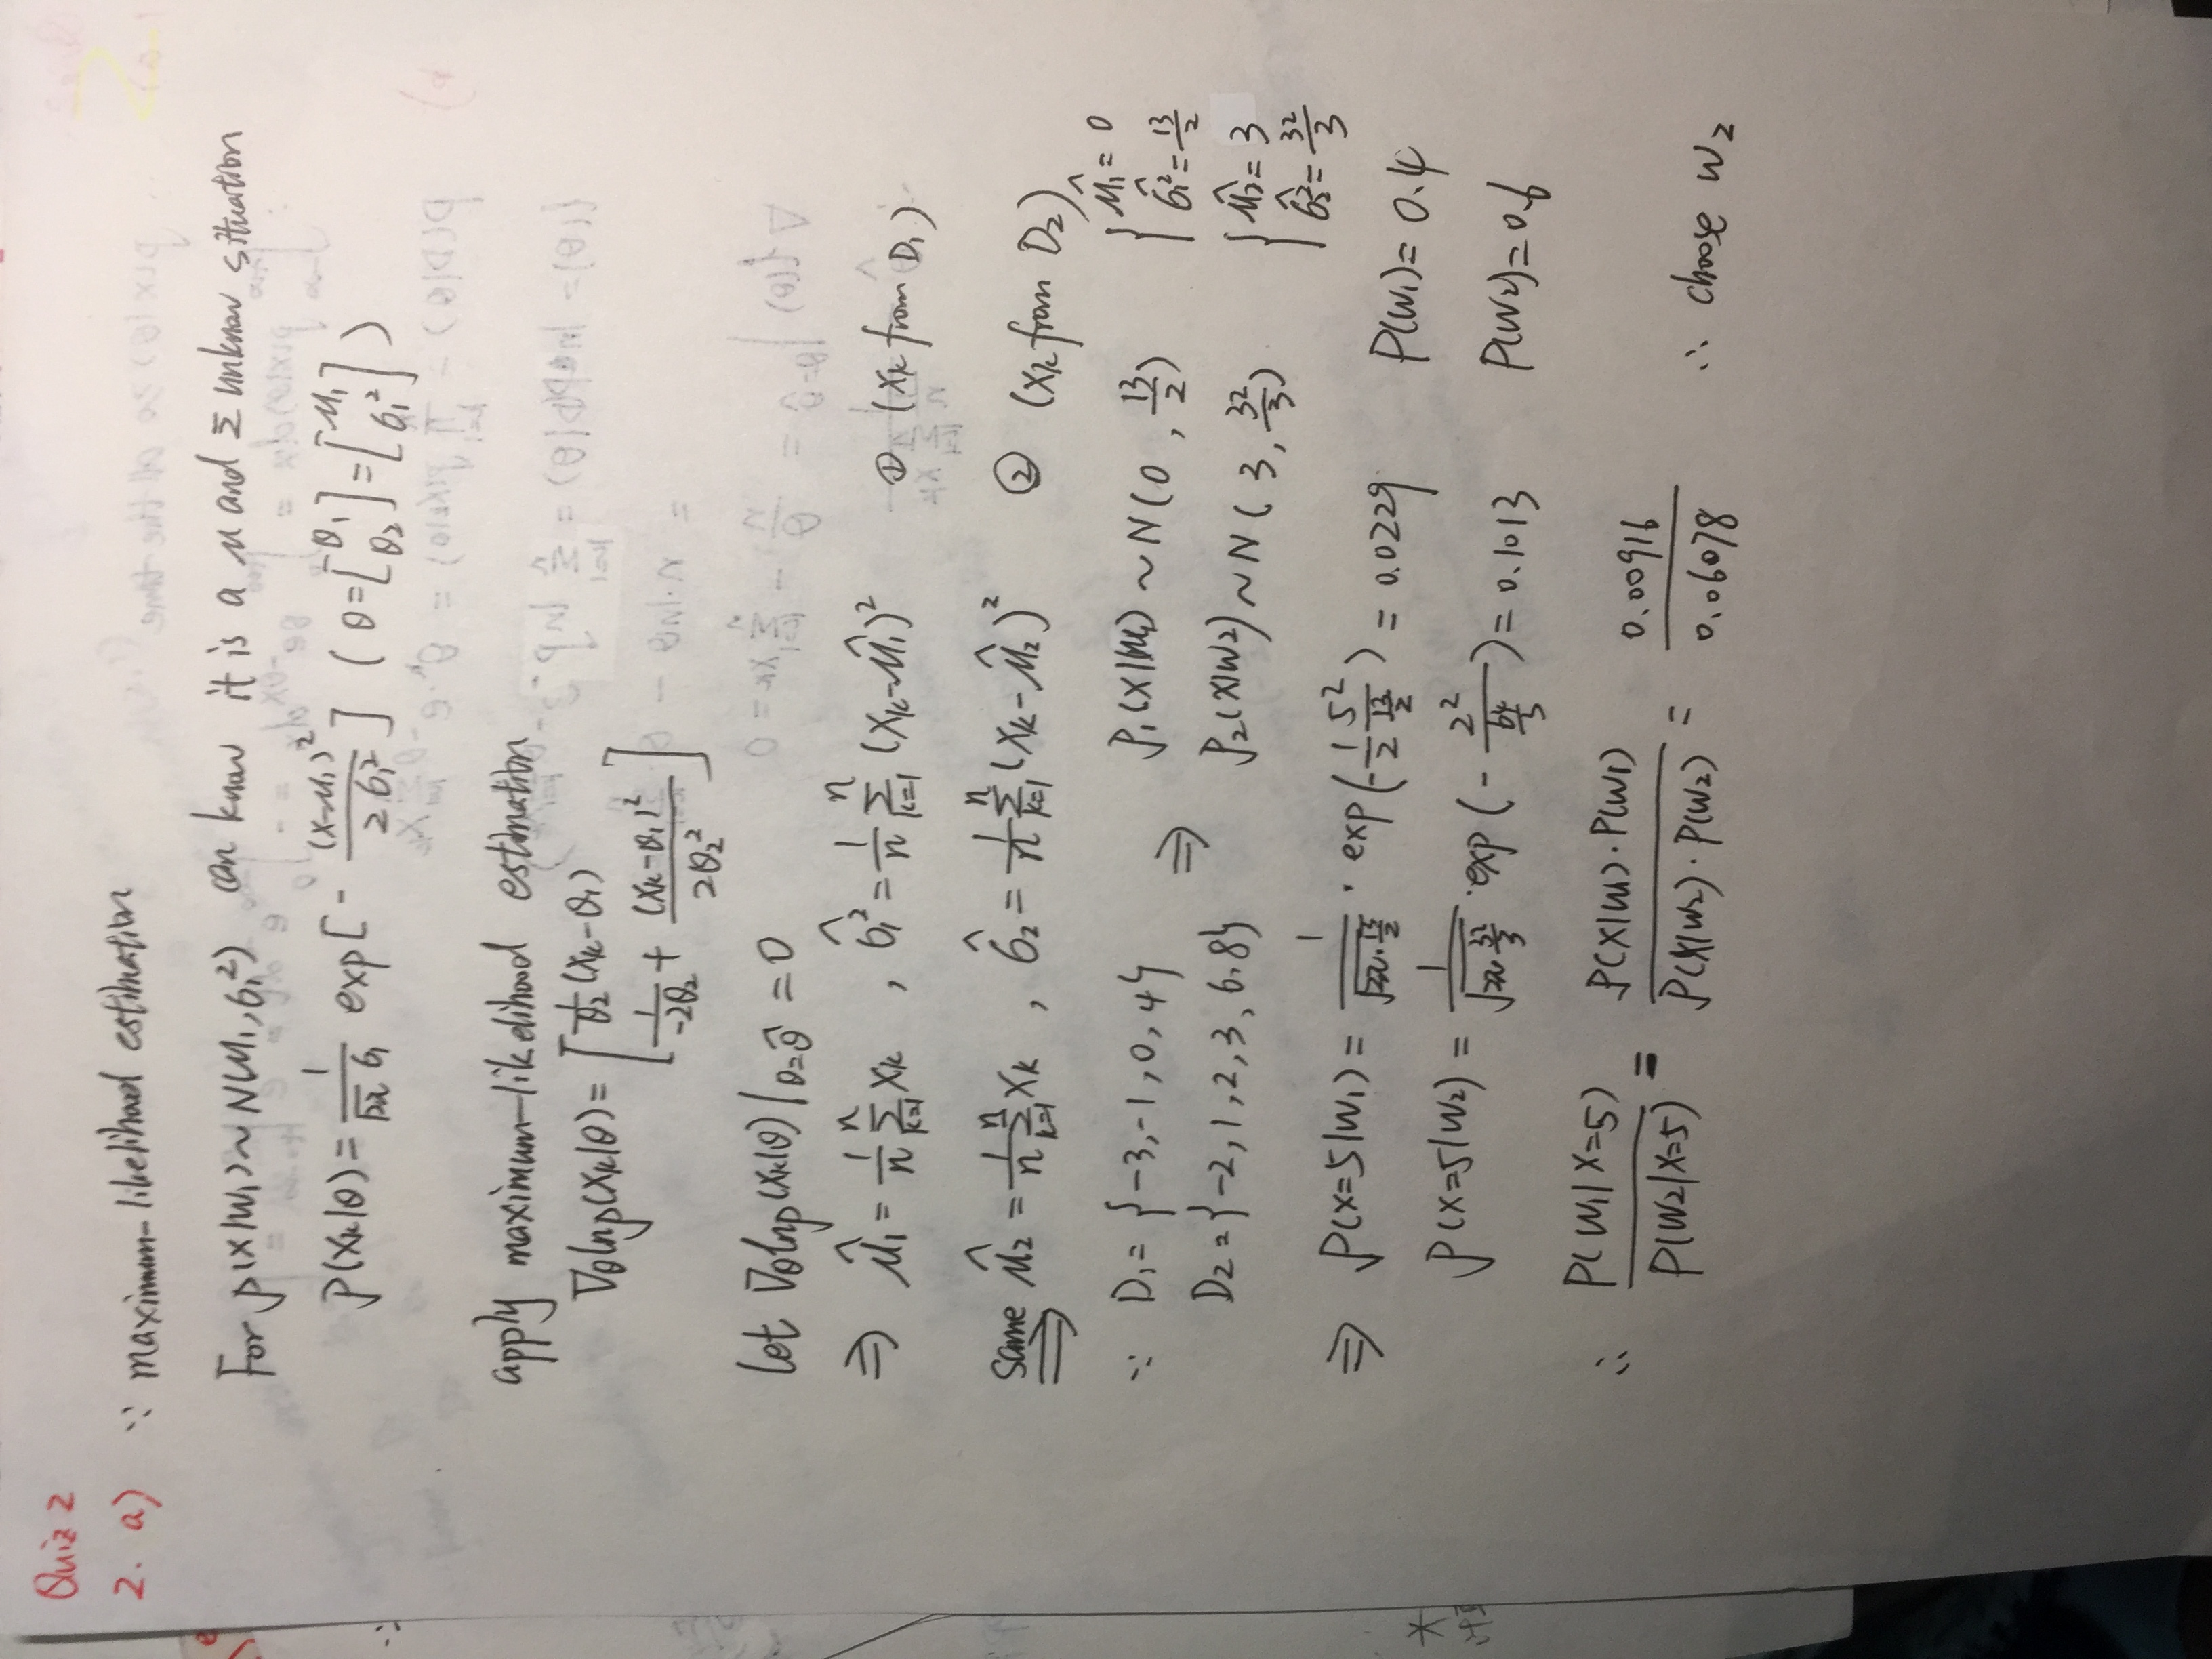 Quiz 2
2. a) ∵ maximum-likelihood estimation
For p(x|w₁)~N(μ₁,σ₁²) can know it is a μ and Σ unknow situation
p(xₖ|θ) = 1/(√2π σ₁) exp[-(x-μ₁)²/(2σ₁²)] (θ=[θ₁ θ₂]=[μ₁ σ₁²])
apply maximum-likelihood estimation
∇θlnp(xₖ|θ) = [1/θ₂ (xₖ-θ₁)
1/(-2θ₂) + (xₖ-θ₁)²/(2θ₂²)]
let ∇θlnp(xₖ|θ)|θ=θ̂ = 0
⇒ μ̂₁ = 1/n Σₖ₌₁ⁿ xₖ , σ̂₁² = 1/n Σₖ₌₁ⁿ (xₖ-μ̂₁)² ① (xₖ from D₁)
same ⇒ μ̂₂ = 1/n Σₖ₌₁ⁿ xₖ , σ̂₂ = 1/n Σₖ₌₁ⁿ (xₖ-μ̂₂)² ② (xₖ from D₂)
∵ D₁ = {-3, -1, 0, 4} ⇒ p₁(x|w₁) ~ N(0, 13/2) { μ̂₁ = 0 σ̂₁² = 13/2
D₂ = {-2, 1, 2, 3, 6, 8} p₂(x|w₂) ~ N(3, 32/3) { μ̂₂ = 3 σ̂₂² = 32/3
⇒ p(x=5|w₁) = 1/√(2π·13/2) · exp(-1/2 5²/(13/2)) = 0.0229 P(w₁) = 0.4
p(x=5|w₂) = 1/√(2π 32/3) · exp(-2²/(64/3)) = 0.1013 P(w₂) = 0.6
∴ P(w₁|x=5)/P(w₂|x=5) = p(x|w₁)·P(w₁)/p(x|w₂)·P(w₂) = 0.00916/0.06078 ∴ choose w₂